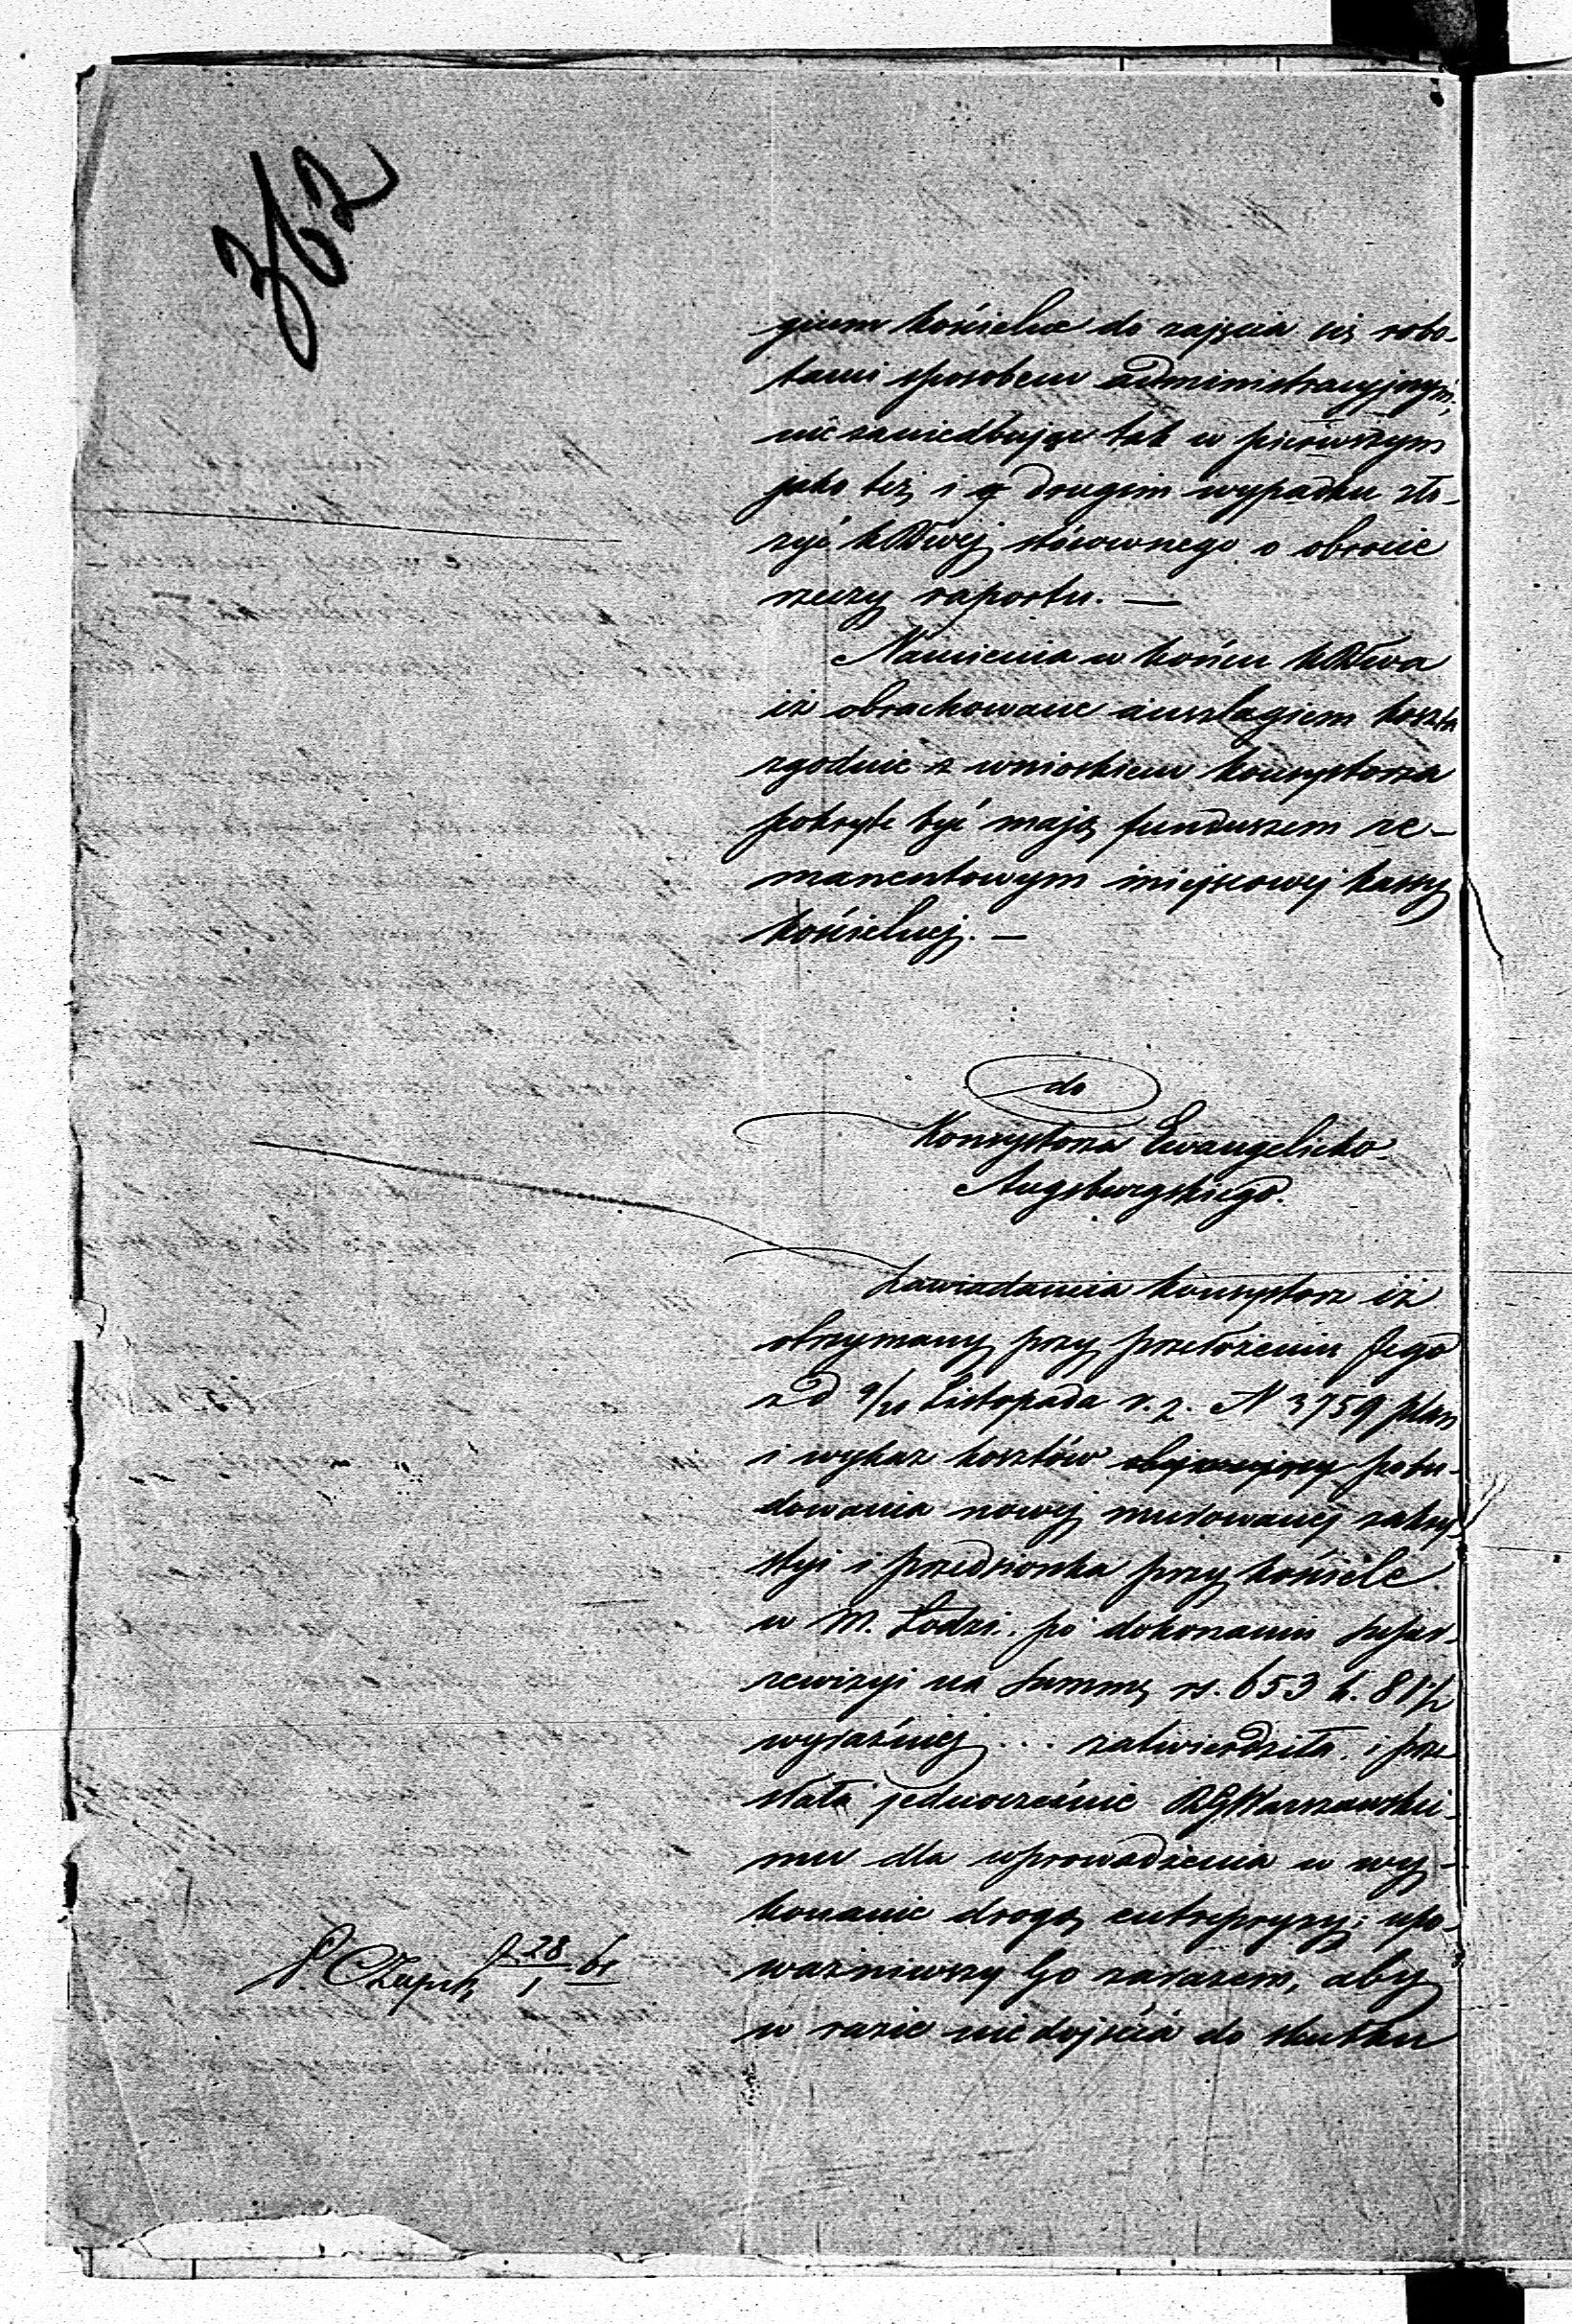 362
gium kościelne do zajęcia się robo-
tami sposobem administracyjnym,
nie zaniedbując tak w pierwszym
jako też i w drugim wypadku zło-
żyć KRwej stósownego o obrocie
rzeczy raportu. —
Namienia w końcu KRwa
iż obrachowane anszlagiem koszta
zgodnie z wnioskiem Konsystorza
pokryte być mają funduszem re-
manentowym miejscowej kassy
kościelnej. —
do
Konsystorza Ewangelicko-
Augsburgskiego.
Zawiadamia Konsystorz iż
otrzymany przy przełożeniu Jego
z d 9/20 Listopada r. z. N 3759 plan
i wykaz kosztów pobu-
dowania nowej murowanej zakry-
styi i przedsionka przy kościele
w M. Łodzi. po dokonaniu super-
rewizyi na summę rs. 653 k. 81½
wyraźniej ... zatwierdziła i prze
słała jednocześnie RGWarszawskie-
mu dla wprowadzenia w wy-
konanie drogą entrepryzy; upo-
ważniwszy Go zarazem, aby
w razie niedojścia do skutku
28/1 61